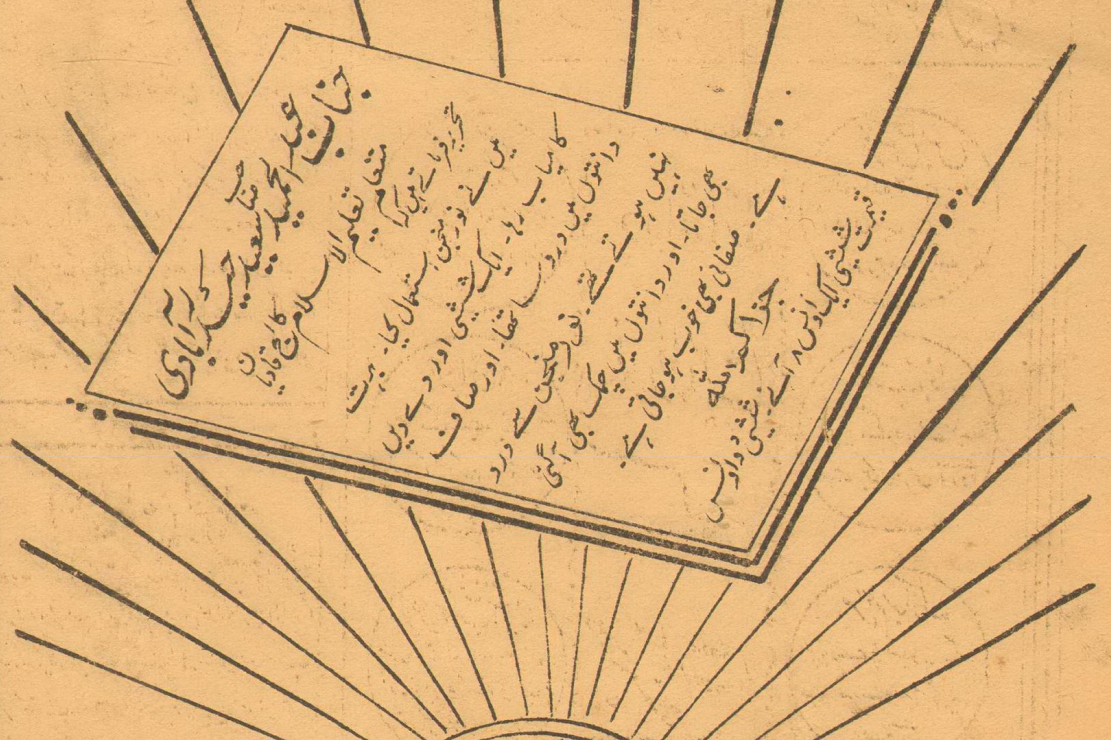 جناب عبدالحمید سعید صاحب حیدرآبادی
متعلم تعلیم الاسلام کالج قادیان
تحریر فرماتے ہیں کہ
میں نے نور منجن استعمال کیا۔ بہت
کامیاب رہا۔ ایک شیشی اور دے دیں
دانتوں میں درد سا تھا۔ اور صاف
نہیں ہوتے تھے۔ نور منجن سے درد
بھی جاتا۔ اور دانتوں میں چمک بھی آگئی
ہے۔ صفائی بھی خوب ہو جاتی ہے۔
جزاکم اللہ
قیمت شیشی ایک اونس ۸ آنے۔ شیشی دو اونس